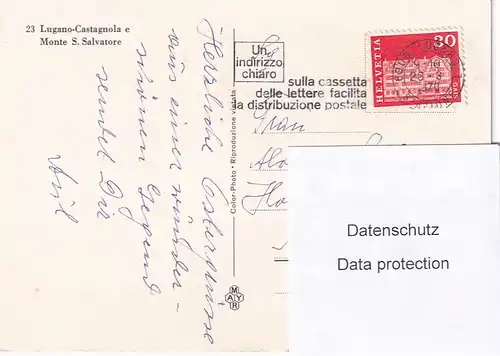 23 Lugano-Castagnola e
Monte S. Salvatore
Herzliche Ostergrüsse
aus einer wunder-
schönen Gegend
sendet Dir
Un
indirizzo
chiaro
sulla cassetta
delle lettere facilita
la distribuzione postale
HELVETIA
30
Color-Photo · Riproduzione vietata
MAYR
Datenschutz
Data protection